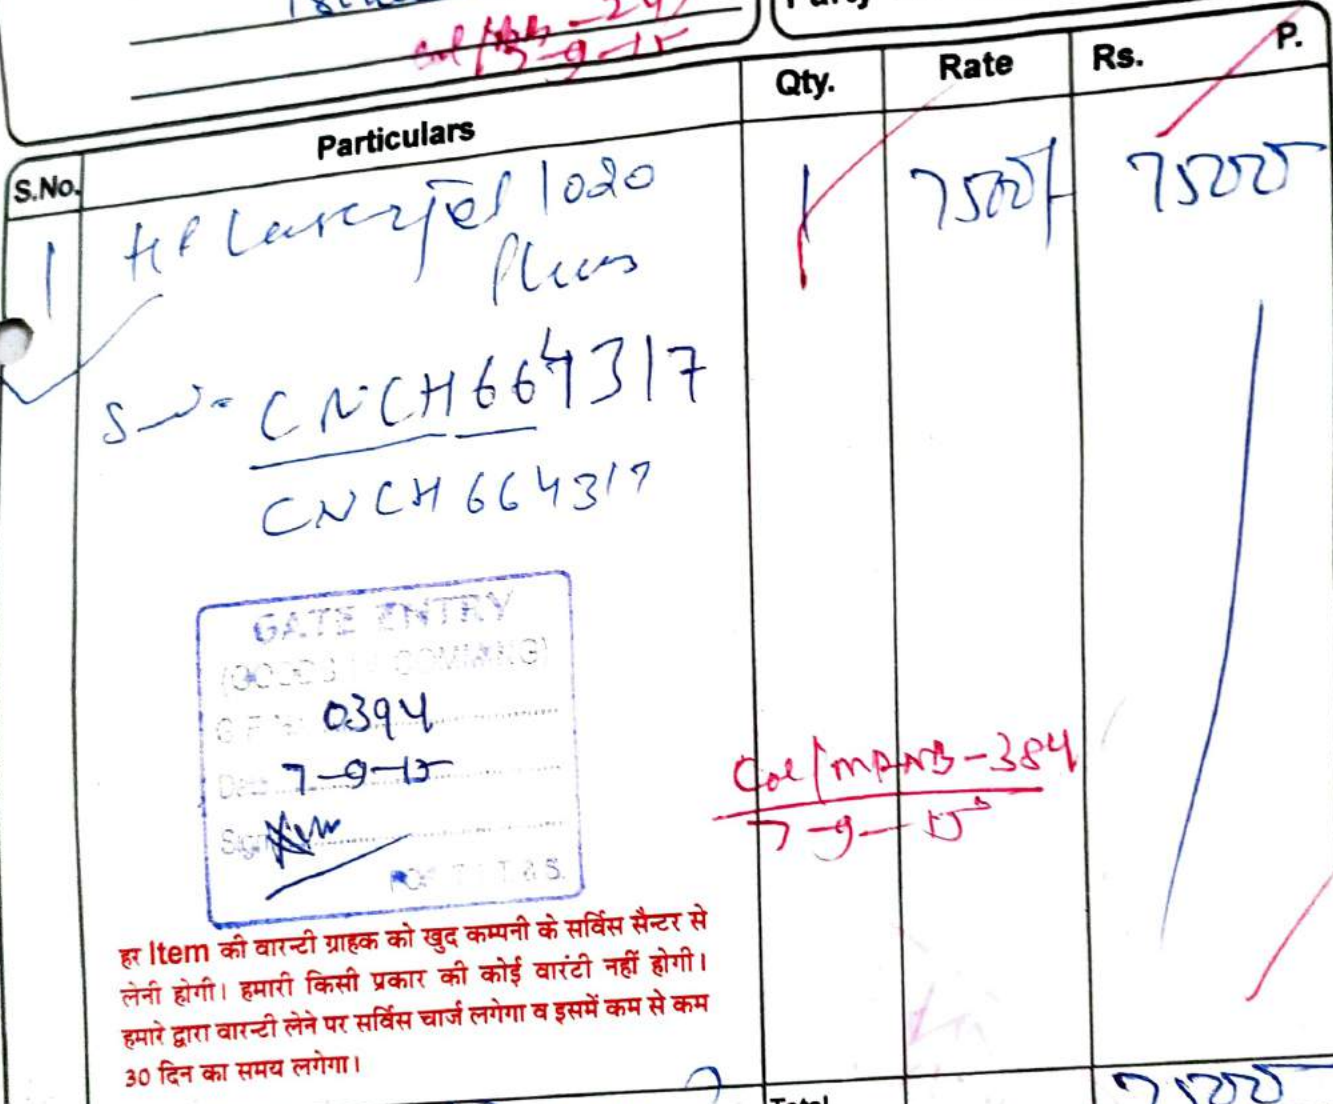 7-9-15
Party
S.No. Particulars Qty. Rate Rs. P.
1 HP Laserjet 1020 1 7500/- 7500
Plus
CNCH664317
CNCH664317
GATE ENTRY
0394
Date 7-9-15
Sign
7-9-15
हर Item की वारन्टी ग्राहक को खुद कम्पनी के सर्विस सैन्टर से
लेनी होगी। हमारी किसी प्रकार की कोई वारंटी नहीं होगी।
हमारे द्वारा वारन्टी लेने पर सर्विस चार्ज लगेगा व इसमें कम से कम
30 दिन का समय लगेगा।
Total 7500